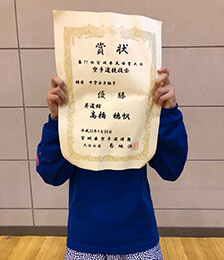 賞状
第71回宮城県民体育大会
空手道競技会
種目 中学女子組手
優勝
昇道館
高橋 穂帆
平成30年9月30日
宮城県空手道連盟
大会会長 菊地